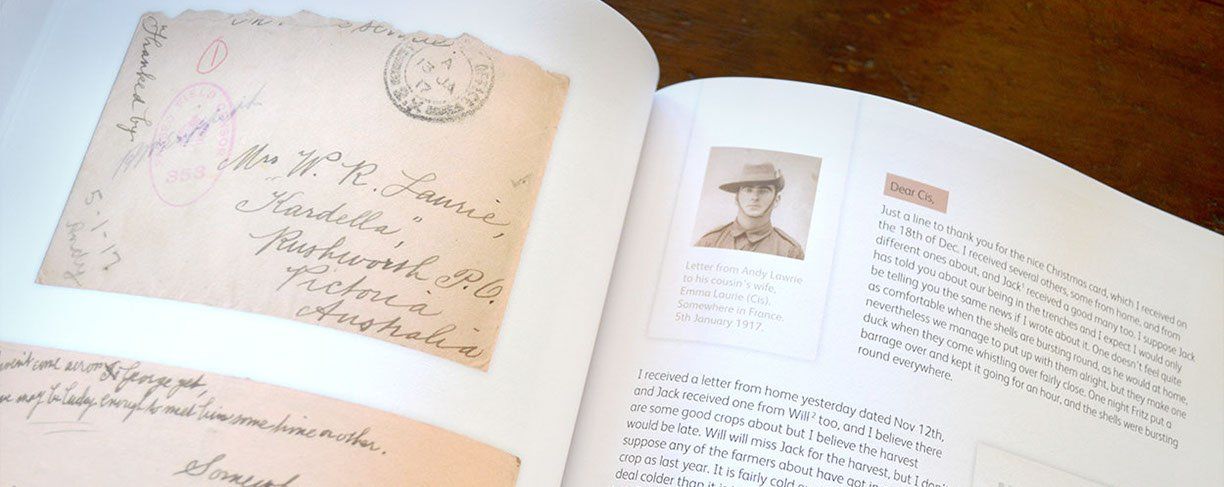 Franked by
FIELD
353
13 JA
17
Mrs W. R. Laurie,
"Kardella",
Rushworth P.O.
Victoria
Australia
5-1-17
Andy
come across George yet,
may be lucky enough to meet him some time or other.
Letter from Andy Lawrie
to his cousin's wife,
Emma Laurie (Cis).
Somewhere in France.
5th January 1917.
Dear Cis,
Just a line to thank you for the nice Christmas card, which I received on
the 18th of Dec. I received several others, some from home, and from
different ones about, and Jack¹ received a good many too. I suppose Jack
has told you about our being in the trenches and I expect I would only
be telling you the same news if I wrote about it. One doesn't feel quite
as comfortable when the shells are bursting round, as he would at home,
nevertheless we manage to put up with them alright, but they make one
duck when they come whistling over fairly close. One night Fritz put a
barrage over and kept it going for an hour, and the shells were bursting
round everywhere.
I received a letter from home yesterday dated Nov 12th,
and Jack received one from Will² too, and I believe there
are some good crops about but I believe the harvest
would be late. Will will miss Jack for the harvest, but I don't
suppose any of the farmers about have got in
crop as last year. It is fairly cold
deal colder than it is